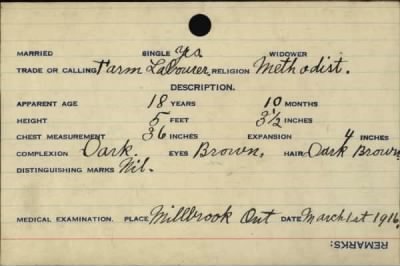 MARRIED SINGLE yes WIDOWER
TRADE OR CALLING Farm Labourer, RELIGION Methodist.
DESCRIPTION.
APPARENT AGE 18 YEARS 10 MONTHS
HEIGHT 5 FEET 3½ INCHES
CHEST MEASUREMENT 36 INCHES EXPANSION 4 INCHES
COMPLEXION Dark. EYES Brown, HAIR Dark Brown
DISTINGUISHING MARKS Nil.
MEDICAL EXAMINATION. PLACE Millbrook Ont DATE March 1st 1916.
REMARKS: